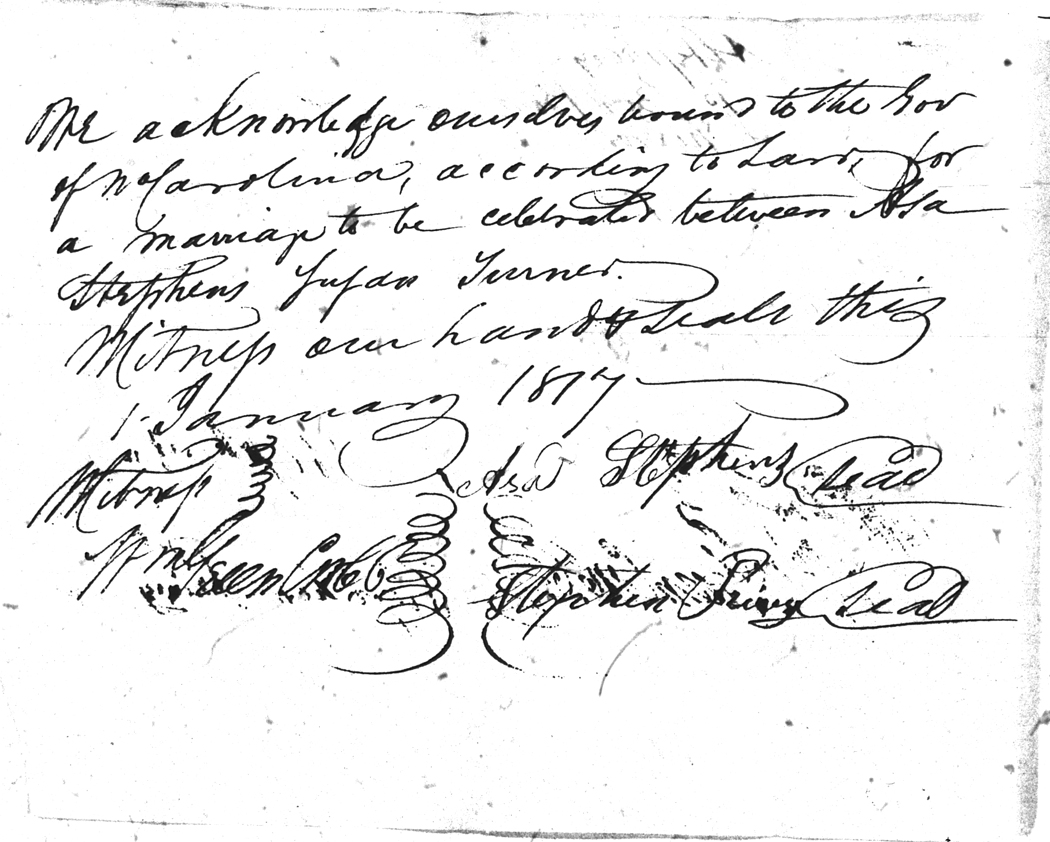 We acknowledge ourselves bound to the Gov
of NCarolina, according to Law, for
a marriage to be celebrated between Asa
Stephens Susan Turner.
Witness our hands & Seals this
1. January 1817
Witness Asa Stephens Seal
Wm Green Cobb Stephen Seal